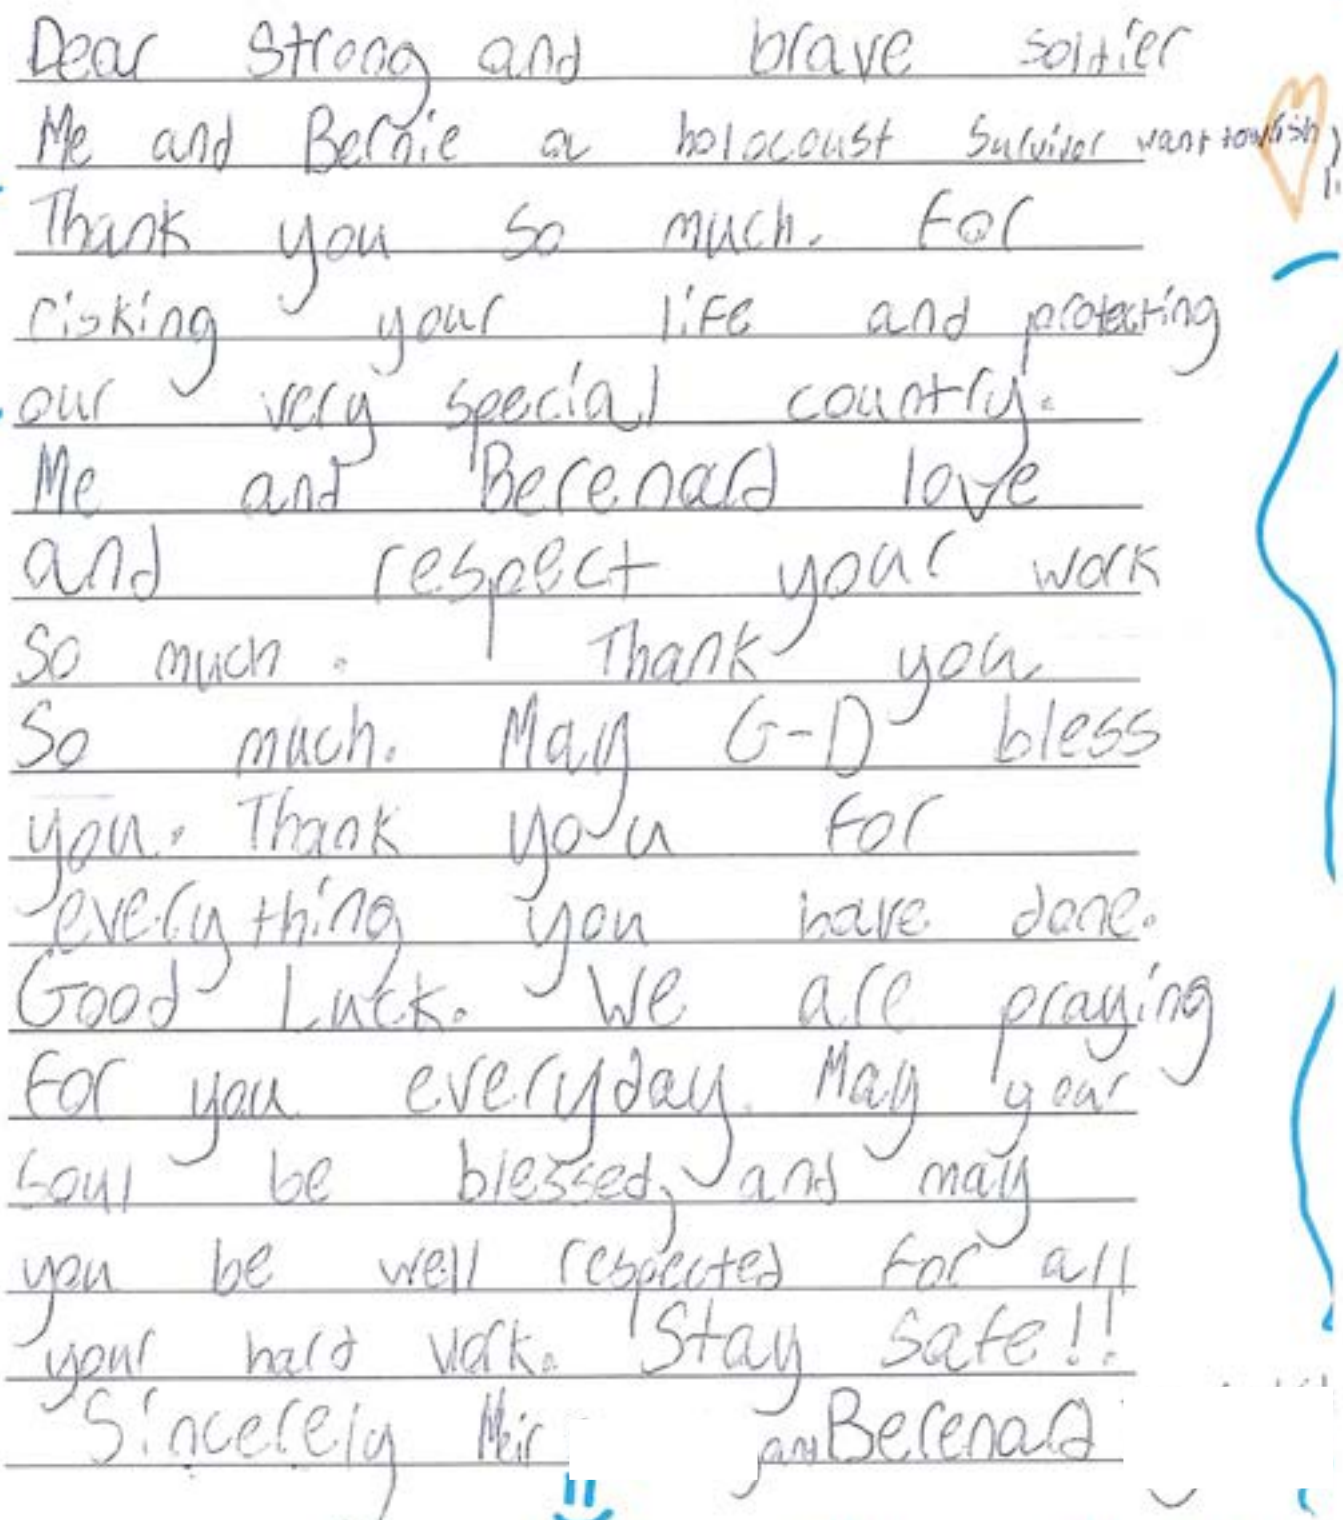 Dear Strong and brave soldier
Me and Bernie a holocoust Survivor want to wish
Thank you so much. For
risking your life and protecting
our very special country.
Me and Berenard love
and respect your work
So much. Thank you
So much. May G-D bless
you. Thank you for
everything you have done.
Good Luck. We are praying
For you everyday. May your
soul be blessed, and may
you be well respected for all
your hard work. Stay safe!!
Sincerely Meir and Berenard